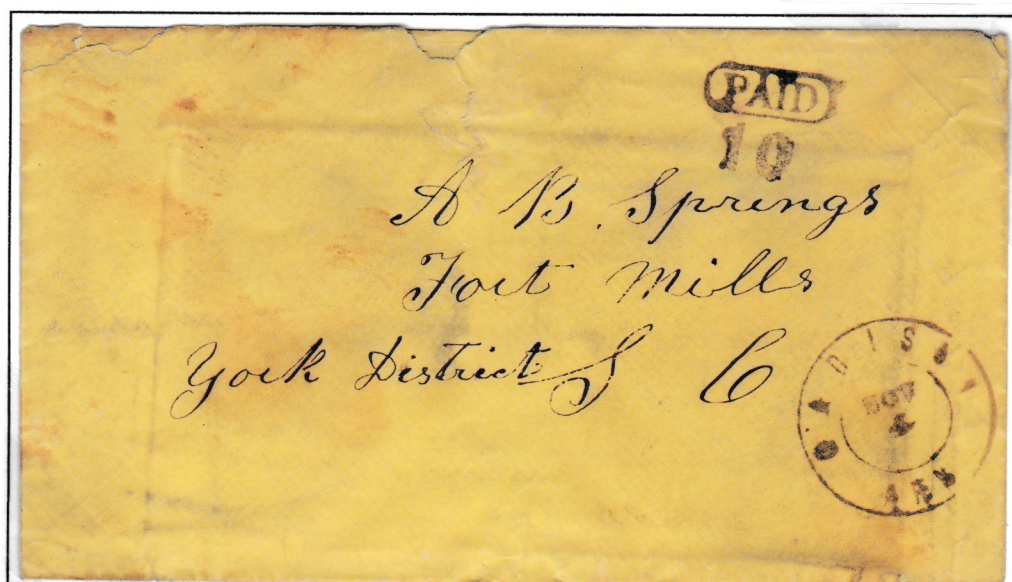 PAID
10
A B. Springs
Fort Mills
York District S C
MADISON
NOV
4
ARK